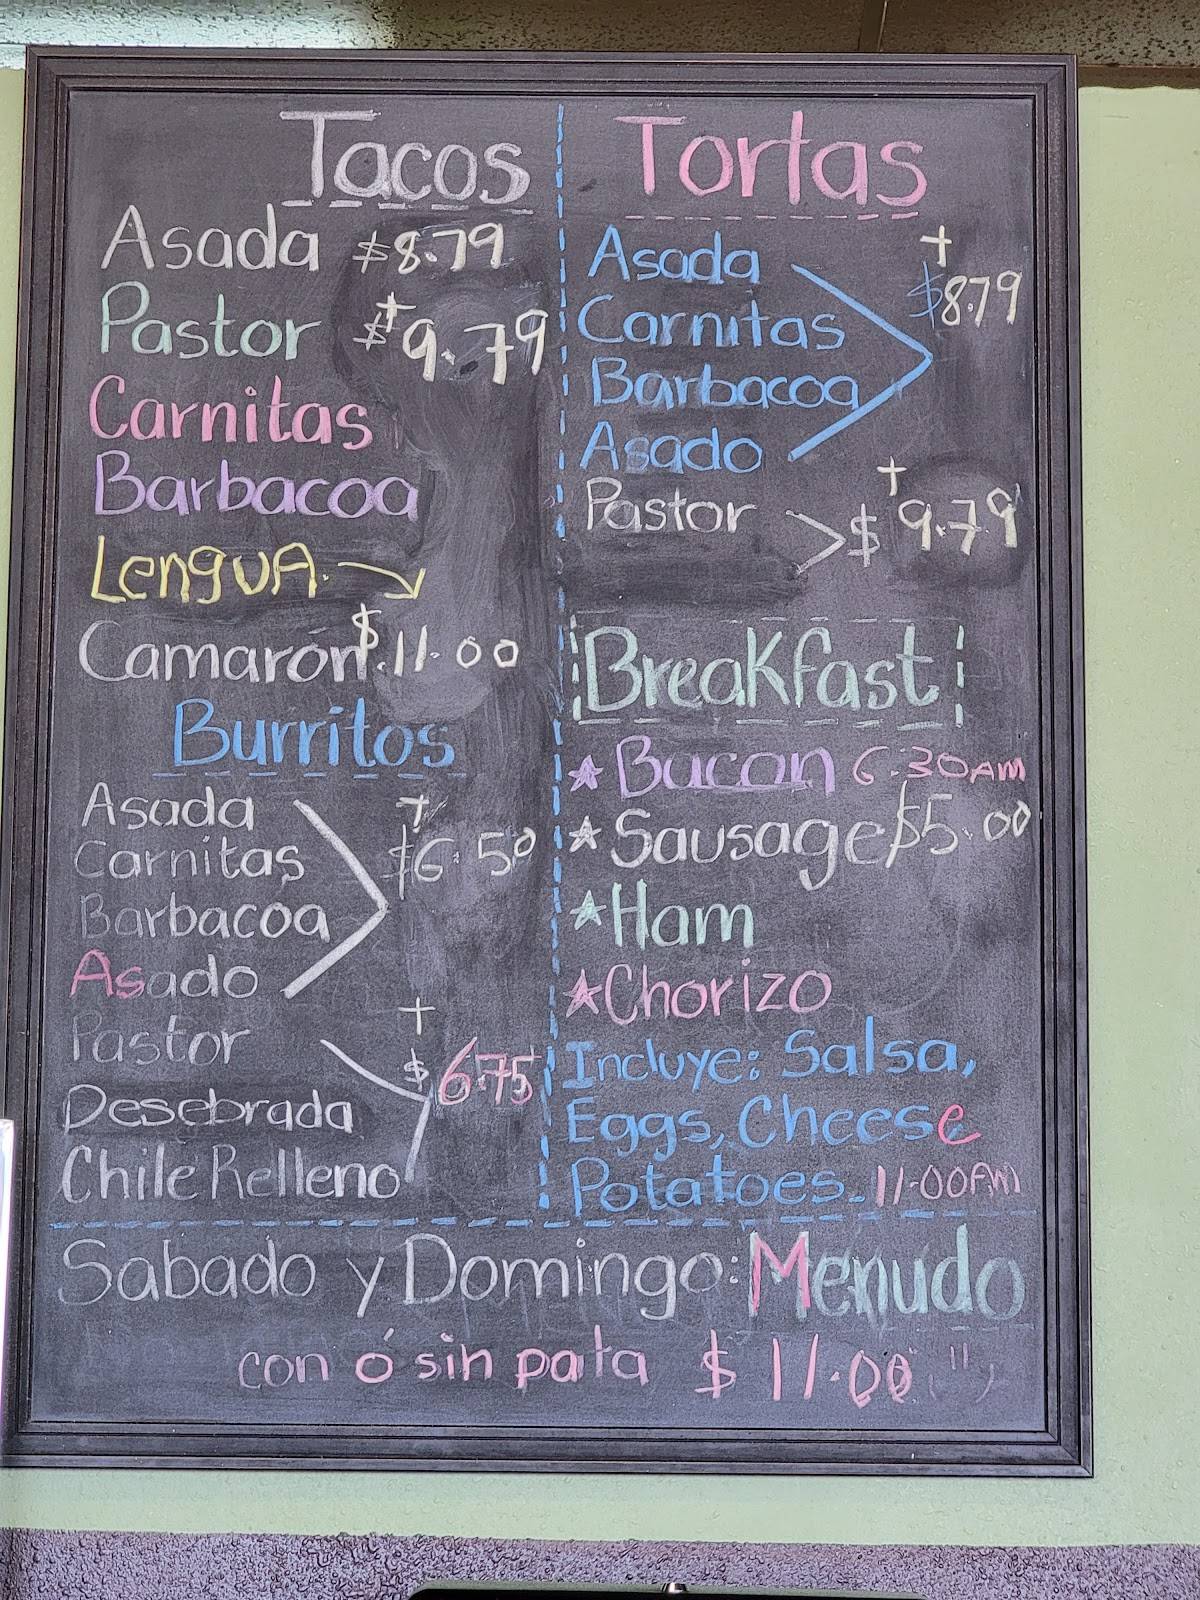 Tacos
Asada $8.79
Pastor $+9.79
Carnitas
Barbacoa
LenguA.
Camarón $.11.00
Burritos
Asada
+
Carnitas $6.50
Barbacoa
Asado
Pastor
+
$6.75
Desebrada
Chile Relleno
Tortas
+
Asada $8.79
Carnitas
Barbacoa
Asado
+
Pastor $9.79
Breakfast
Bacon 6:30AM
Sausage $5.00
Ham
Chorizo
Incluye: Salsa,
Eggs, Cheese
Potatoes. 11:00AM
Sabado y Domingo: Menudo
con ó sin pata $11.00